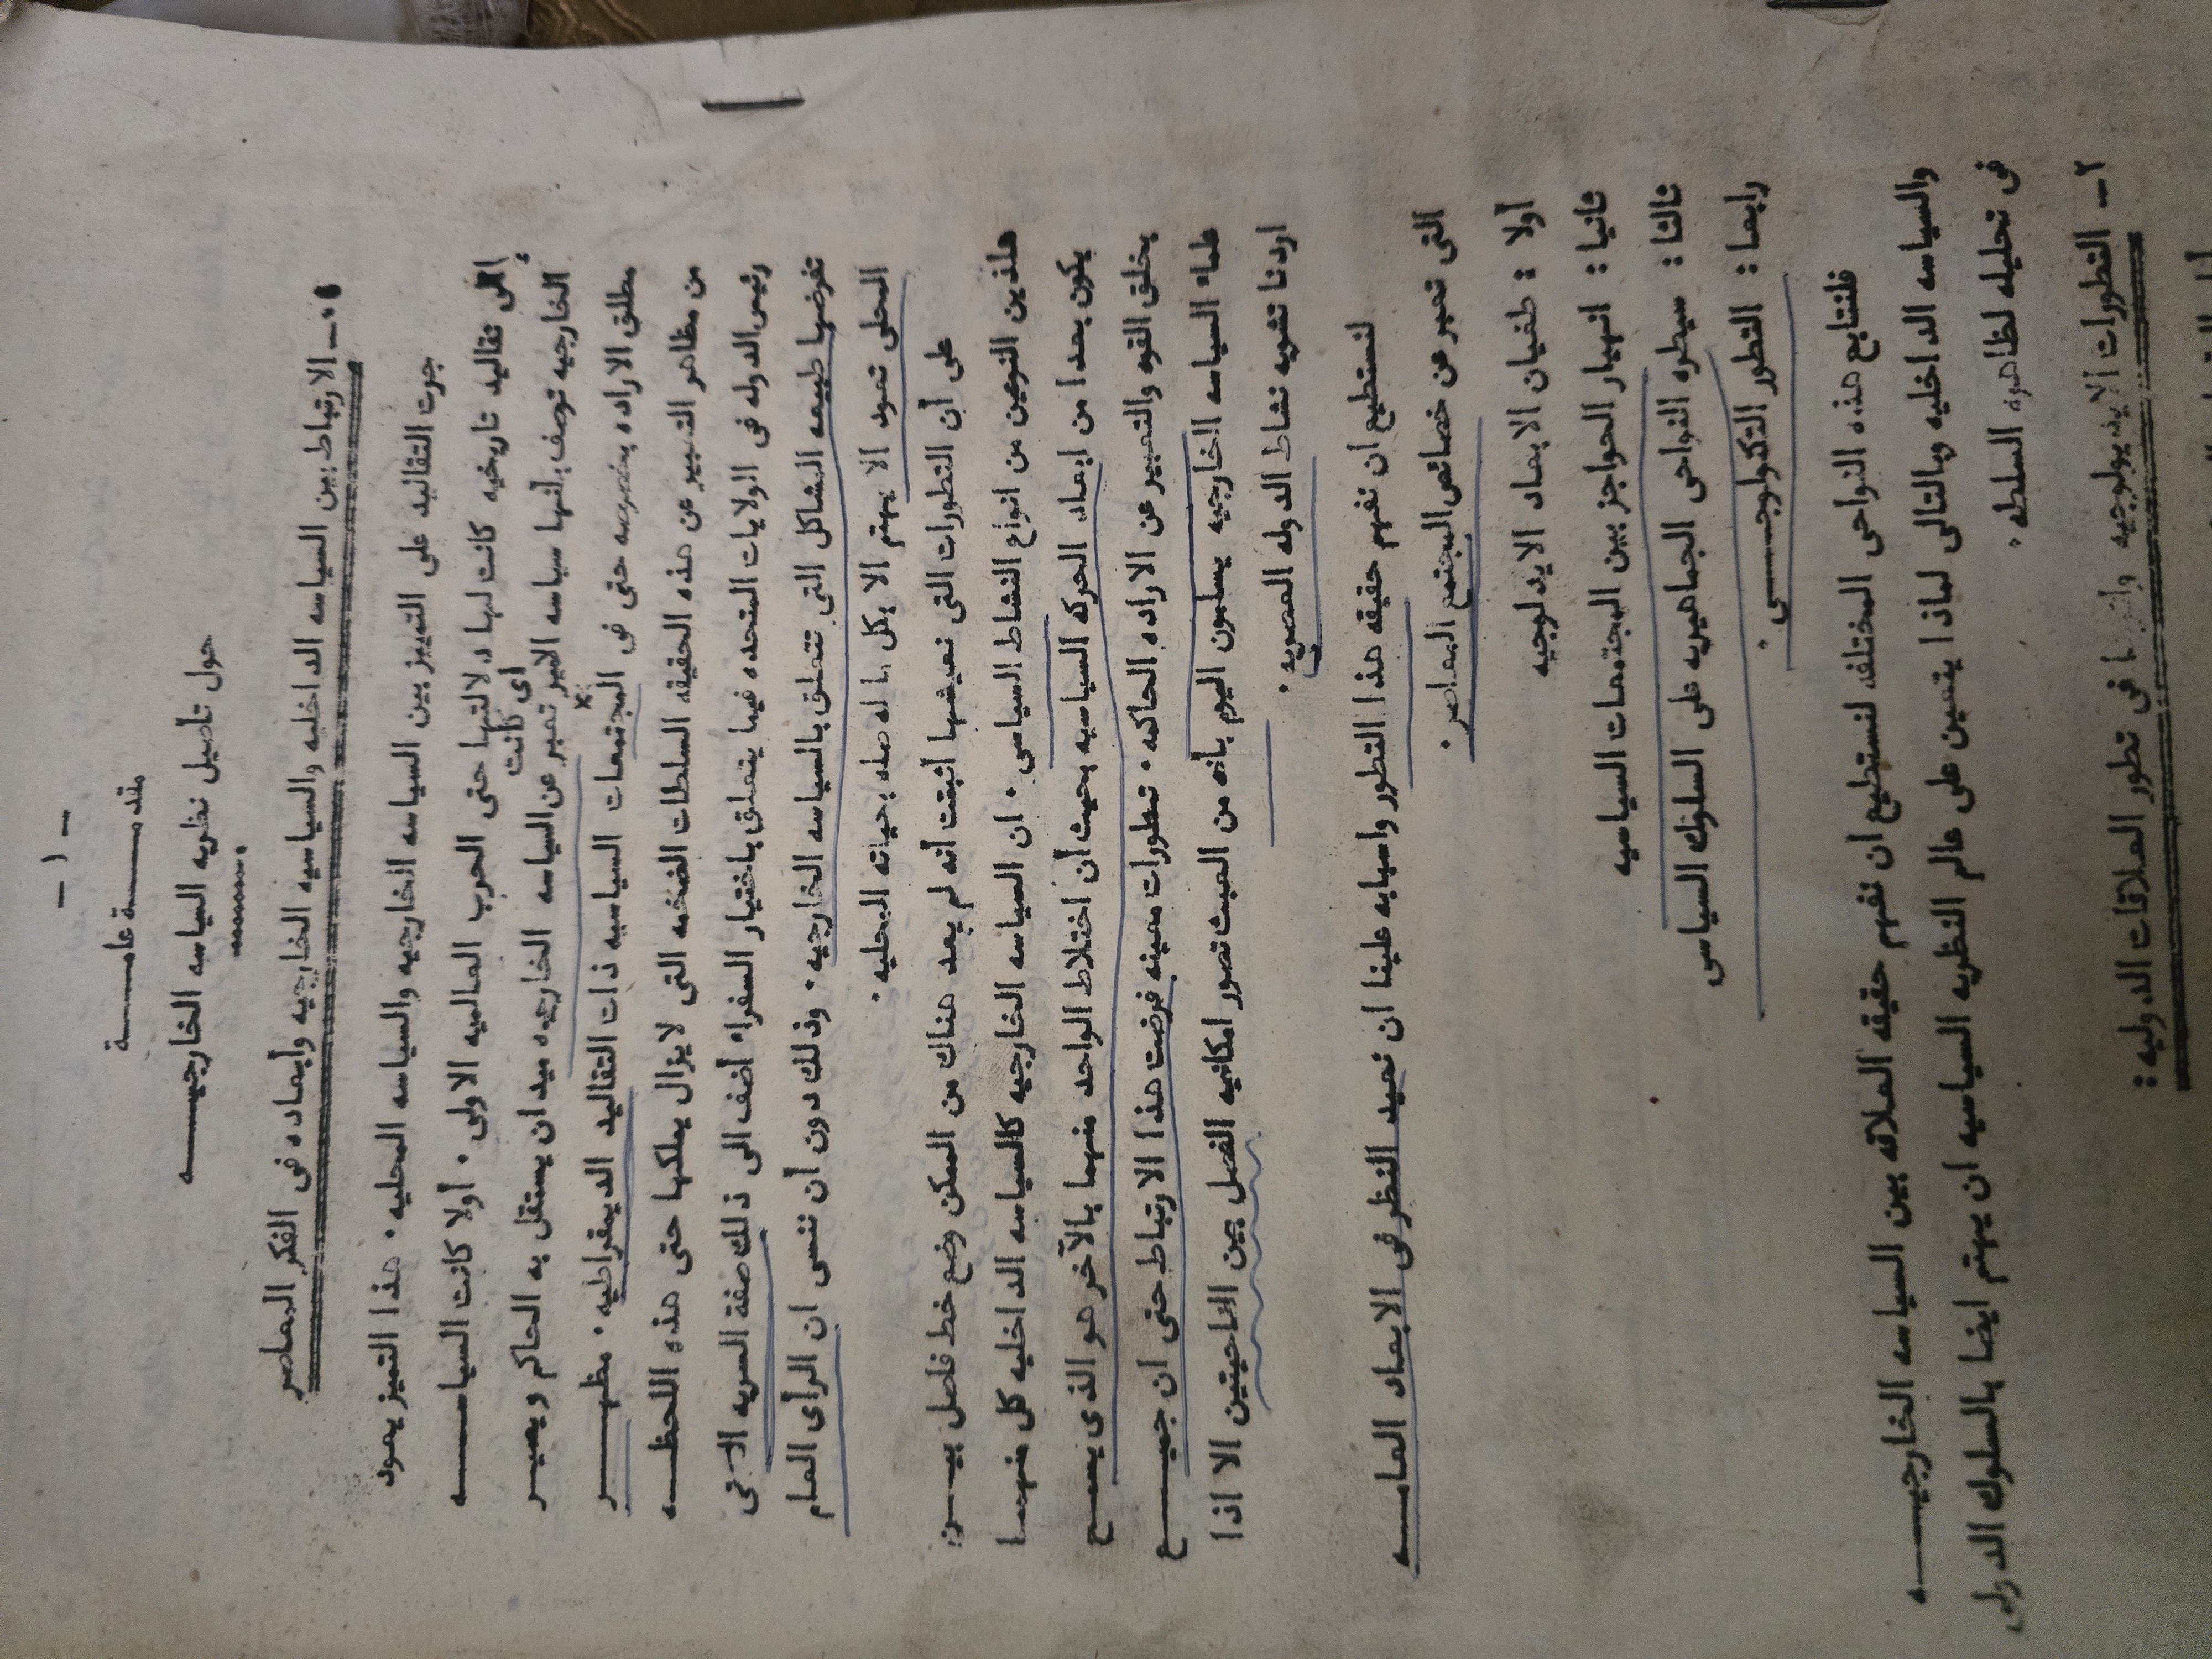 - ١ -
مقدمـــة عامـــة
حول تأصيل نظريه السياسه الخارجيـــه
١ــ الارتباط بين السياسه الداخليه والسياسيه الخارجيه وأبعاده فى الفكر المعاصر
جرت التقاليد على التمييز بين السياسه الخارجيه والسياسه المحليه ٠ هذا التميز يعود
إلى تقاليد تاريخيه كانت لها دلالتها حتى الحرب العالميه الاولى ٠ أولا كانت السياســـه
أى كانت
الخارجيه توصف بأنها سياسه الامير تعبير عن السياسه الخارجيه ميدان يستقل به الحاكم ويصيـــر
مطلق الاراده بخصوصه حتى فى المجتمعات السياسيه ذات التقاليد الديمقراطيه ٠ مظهـــر
من مظاهر التعبير عن هذه الحقيقه السلطات الضخمه التى لا يزال يملكها حتى هذه اللحظـــه
رئيس الدوله فى الولايات المتحده فيما يتعلق باختيار السفراء أضف الى ذلك صفة السريه التى
تفرضها طبيعه المشاكل التى تتعلق بالسياسه الخارجيه ٠ وذلك دون أن ننسى ان الرأى العام
المحلى تعود الا يهتم الا بكل ما له صله بحياته المحليه ٠
على أن التطورات التى نعيشها أثبتت أنه لم يعد هناك من الممكن وضع خط فاصل بيـــن
هذين النوعين من انواع النشاط السياسى ٠ ان السياسه الخارجيه كالسياسه الداخليه كل منهمـا
يكون بعدا من ابعاد الحركه السياسيه بحيث أن اختلاط الواحد منهما بالآخر هو الذى يسمـــح
بخلق القوه والتعبير عن الاراده الحاكمه ٠ تطورات معينه فرضت هذا الارتباط حتى ان جميـــع
علماء السياسه الخارجيه يسلمون اليوم بأنه من العبث تصور امكانيه الفصل بين الناحيتين الا اذا
اردنا تشويه نشاط الدوله العصريه ٠
لنستطيع ان نفهم حقيقه هذا التطور واسبابه علينا ان نعيد النظر فى الابعاد العامـــه
التى تعبر عن خصائص المجتمع المعاصر ٠
أولا : طغيان الابعاد الايدلوجيه
ثانيا : انهيار الحواجز بين المجتمعات السياسيه
ثالثا : سيطره النواحى الجماهيريه على السلوك السياسى
رابعا : التطور التكنولوجـــى ٠
فلنتابع هذه النواحى المختلفه لنستطيع ان نفهم حقيقه العلاقه بين السياسه الخارجيـــه
والسياسه الداخليه وبالتالى لماذا يتعين على عالم النظريه السياسيه ان يهتم ايضا بالسلوك الدولى
فى تحليله لظاهره السلطه ٠
٢ــ التطورات الايديولوجيه فى تطور العلاقات الدوليه :